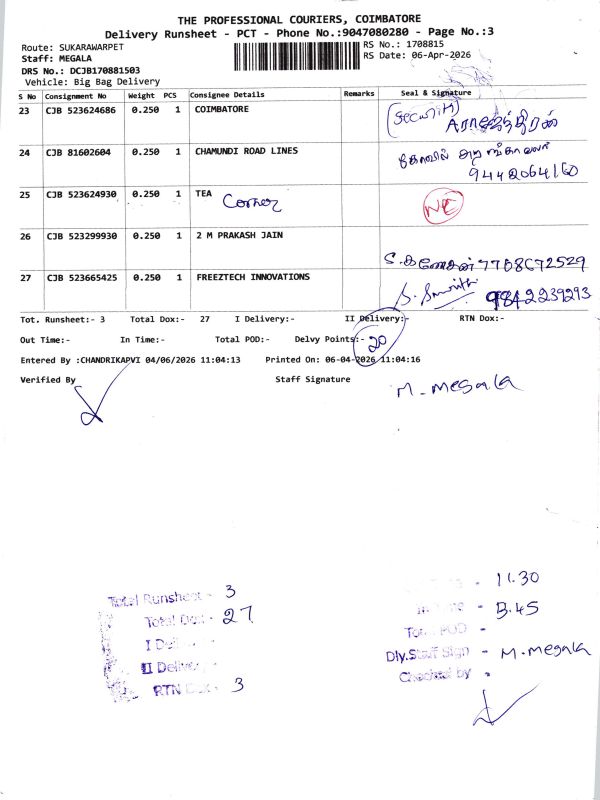 THE PROFESSIONAL COURIERS, COIMBATORE
Delivery Runsheet - PCT - Phone No.:9047080280 - Page No.:3
Route: SUKARAWARPET
RS No.: 1708815
Staff: MEGALA
RS Date: 06-Apr-2026
DRS No.: DCJB170881503
Vehicle: Big Bag Delivery
S No Consignment No Weight PCS Consignee Details Remarks Seal & Signature
23 CJB 523624686 0.250 1 COIMBATORE (Security)
24 CJB 81602604 0.250 1 CHAMUNDI ROAD LINES
9442064160
25 CJB 523624930 0.250 1 TEA Corner NC
26 CJB 523299930 0.250 1 2 M PRAKASH JAIN
S. கணேசன் 7708672529
27 CJB 523665425 0.250 1 FREEZTECH INNOVATIONS 9842239293
Tot. Runsheet:- 3 Total Dox:- 27 I Delivery:- II Delivery:- RTN Dox:-
Out Time:- In Time:- Total POD:- Delvy Points:- 20
Entered By :CHANDRIKAPVI 04/06/2026 11:04:13 Printed On: 06-04-2026 11:04:16
Verified By Staff Signature M. Megala
Total Runsheet - 3
Total Dox - 27
I Deli
II Delivery -
RTN Dox - 3
- 11.30
- 3.45
POD -
Dly.Staff Sign - M. Megala
Checked by -